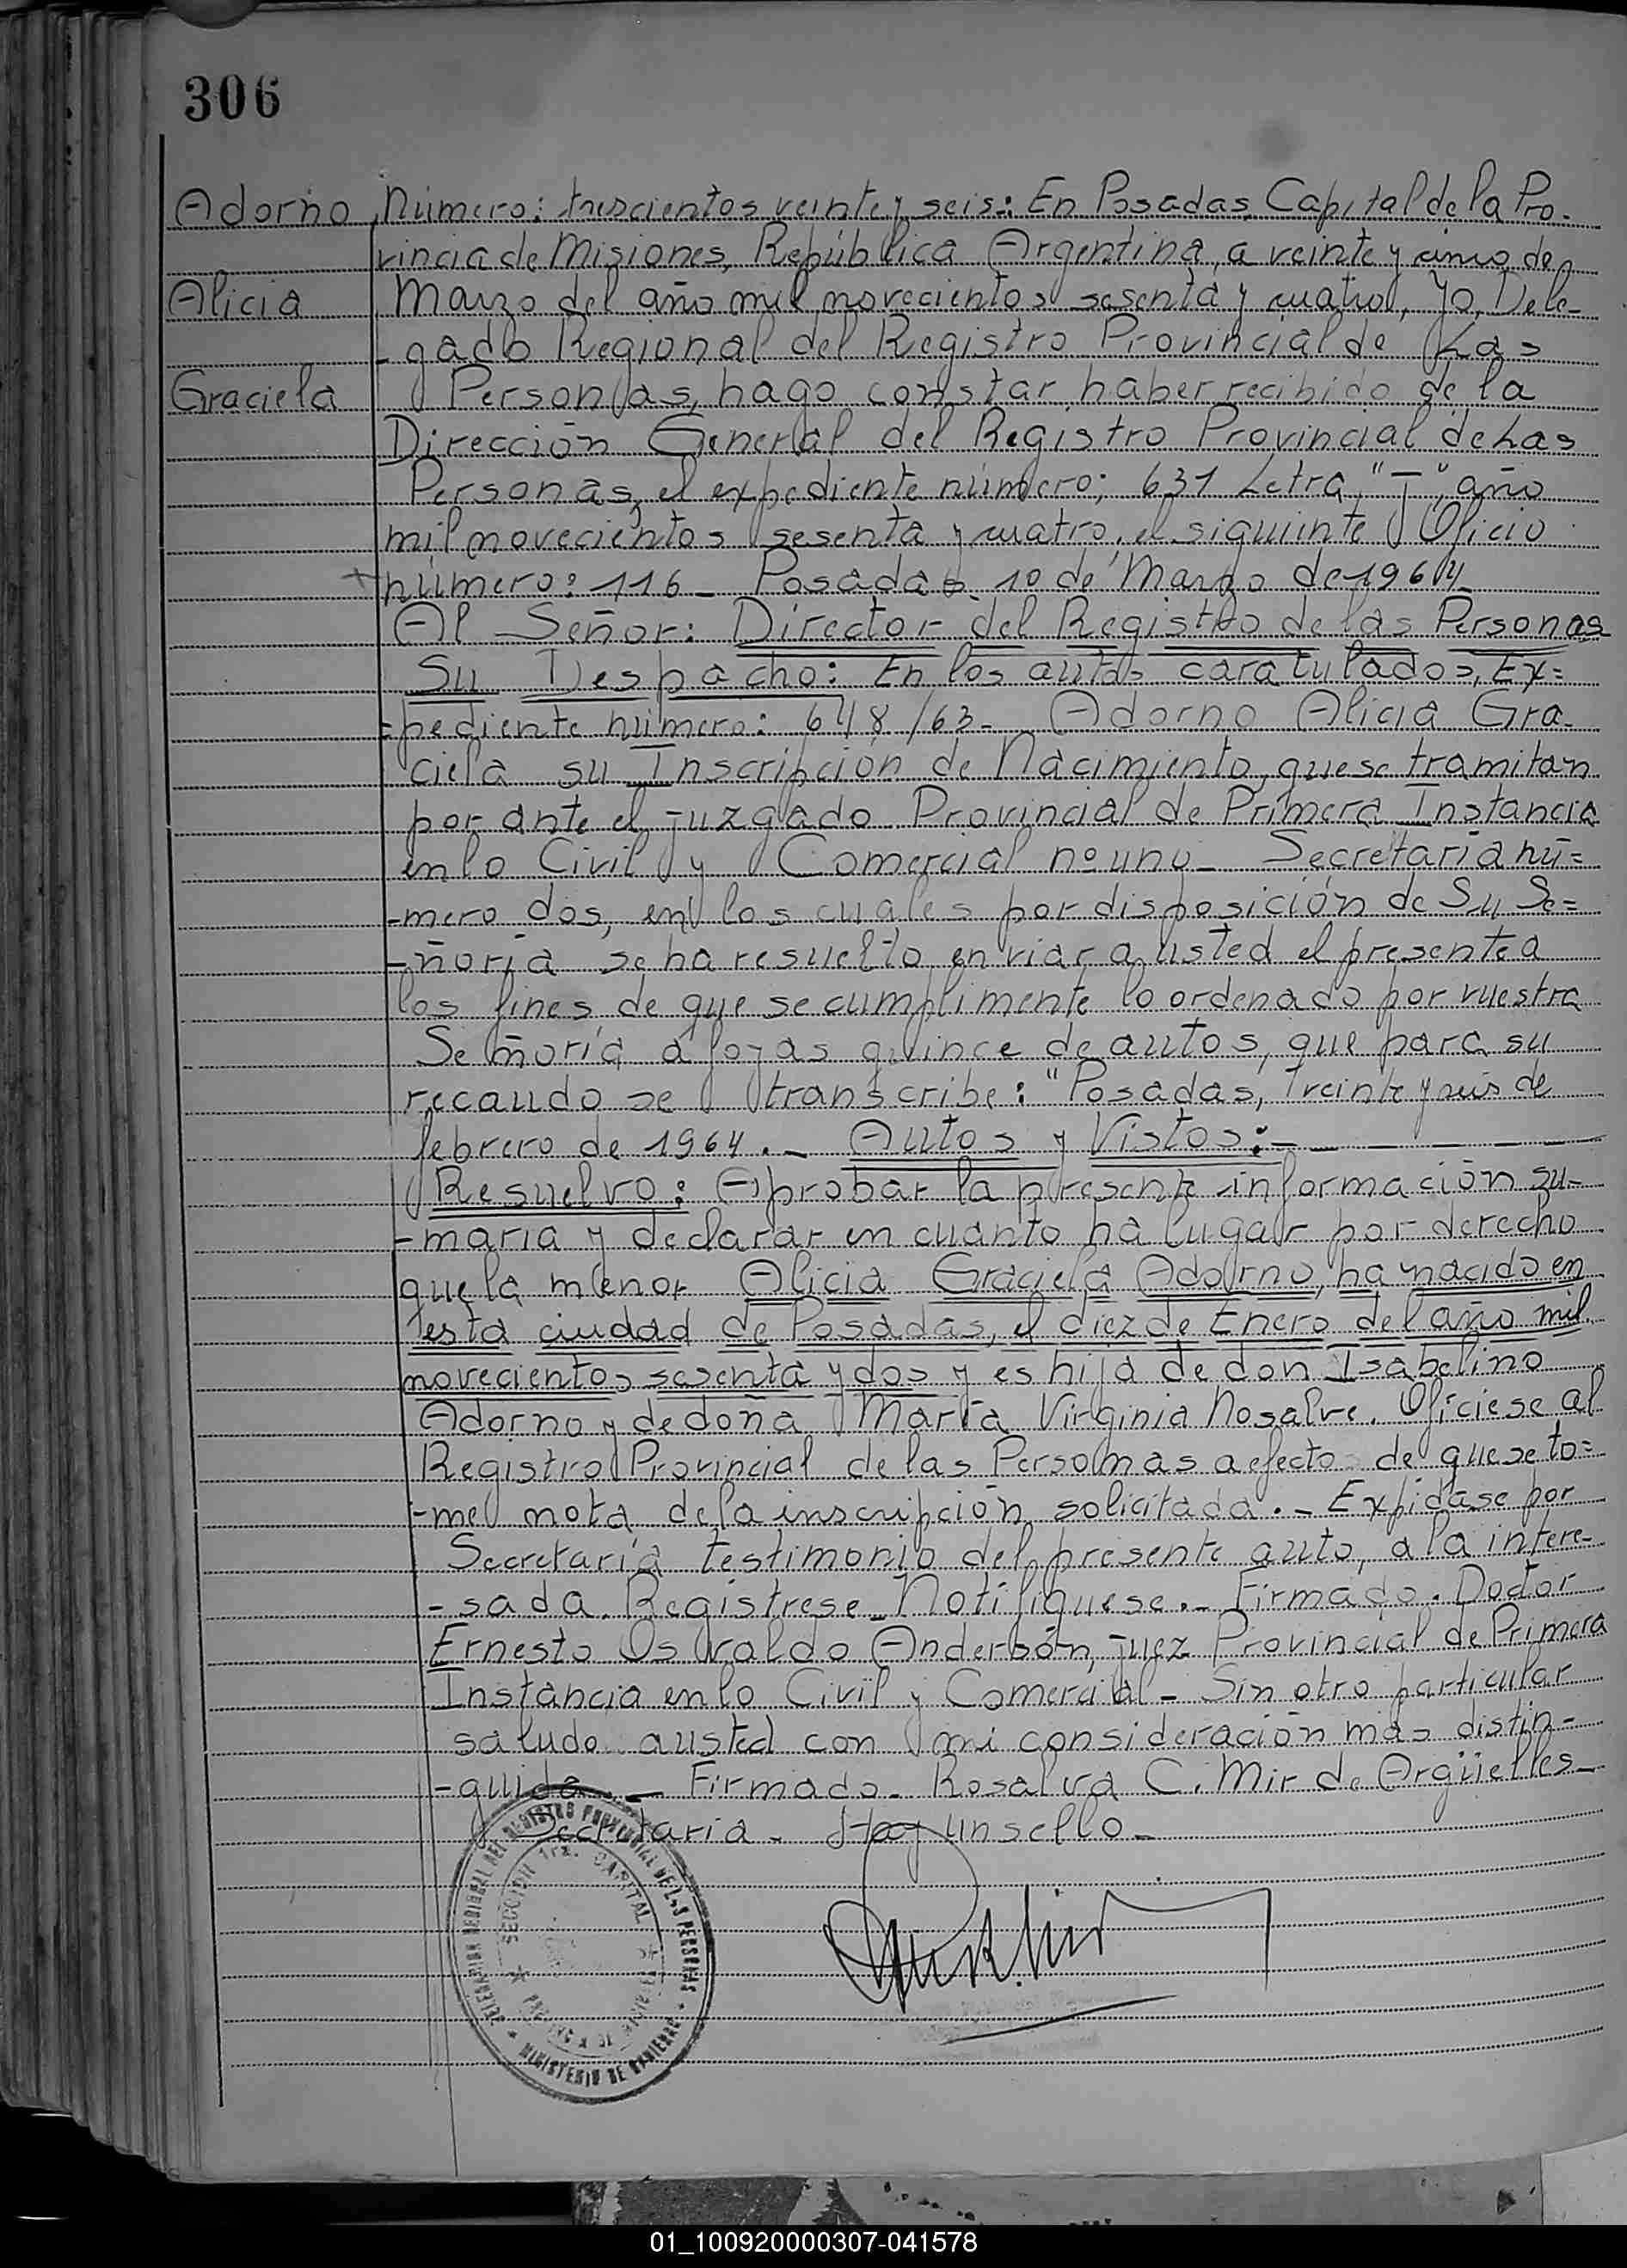 306
Adorno Número: trescientos veinte y seis: En Posadas, Capital de la Pro-
vincia de Misiones, República Argentina, a veinte y cinco de
Alicia Marzo del año mil novecientos sesenta y cuatro, Yo, Dele-
-gado Regional del Registro Provincial de Las
Graciela Personas, hago constar haber recibido de la
Dirección General del Registro Provincial de Las
Personas, el expediente número; 631 Letra, "T", año
mil novecientos sesenta y cuatro, el siguiinte Oficio
número: 116 - Posadas. 10 de Marzo de 1964
Al Señor: Director del Registro de las Personas
Su Despacho: En los autos caratulados, Ex=
=pediente número: 648/63- Adorno Alicia Gra-
ciela su Inscripción de Nacimiento, que se tramitan
por ante el juzgado Provincial de Primera Instancia
en lo Civil y Comercial nº uno - Secretaria nú=
-mero dos, en los cuales por disposición de Su Se=
-ñoría se ha resuelto enviar a usted el presente a
los fines de que se cumplimente lo ordenado por vuestra
Señoría a fojas quince de autos, que para su
recaudo se transcribe: "Posadas, Treinta y seis de
febrero de 1964.- Autos y Vistos:-
Resuelvo: Aprobar la presente información su-
-maria y declarar en cuanto ha lugar por derecho
que la menor Alicia Graciela Adorno, ha nacido en
esta ciudad de Posadas, el diez de Enero del año mil
novecientos sesenta y dos y es hija de don Isabelino
Adorno y de doña María Virginia Nosalve. Ofíciese al
Registro Provincial de las Personas a efecto de que se to=
-me nota de la inscripción solicitada.- Expídase por
Secretaría testimonio del presente auto, a la intere-
-sada. Regístrese - Notifíquese.- Firmado. Doctor
Ernesto Osvaldo Anderson, juez Provincial de Primera
Instancia en lo Civil y Comercial - Sin otro particular
saludo a usted con mi consideración más distin-
-guida - Firmado. Rosalva C. Mir de Orgüelles-
Secretaria - Hay un sello -
DELEGACION REGIONAL DEL REGISTRO PROVINCIAL DE LAS PERSONAS
SECCION 1ra. CAPITAL
MINISTERIO DE GOBIERNO
01_100920000307-041578